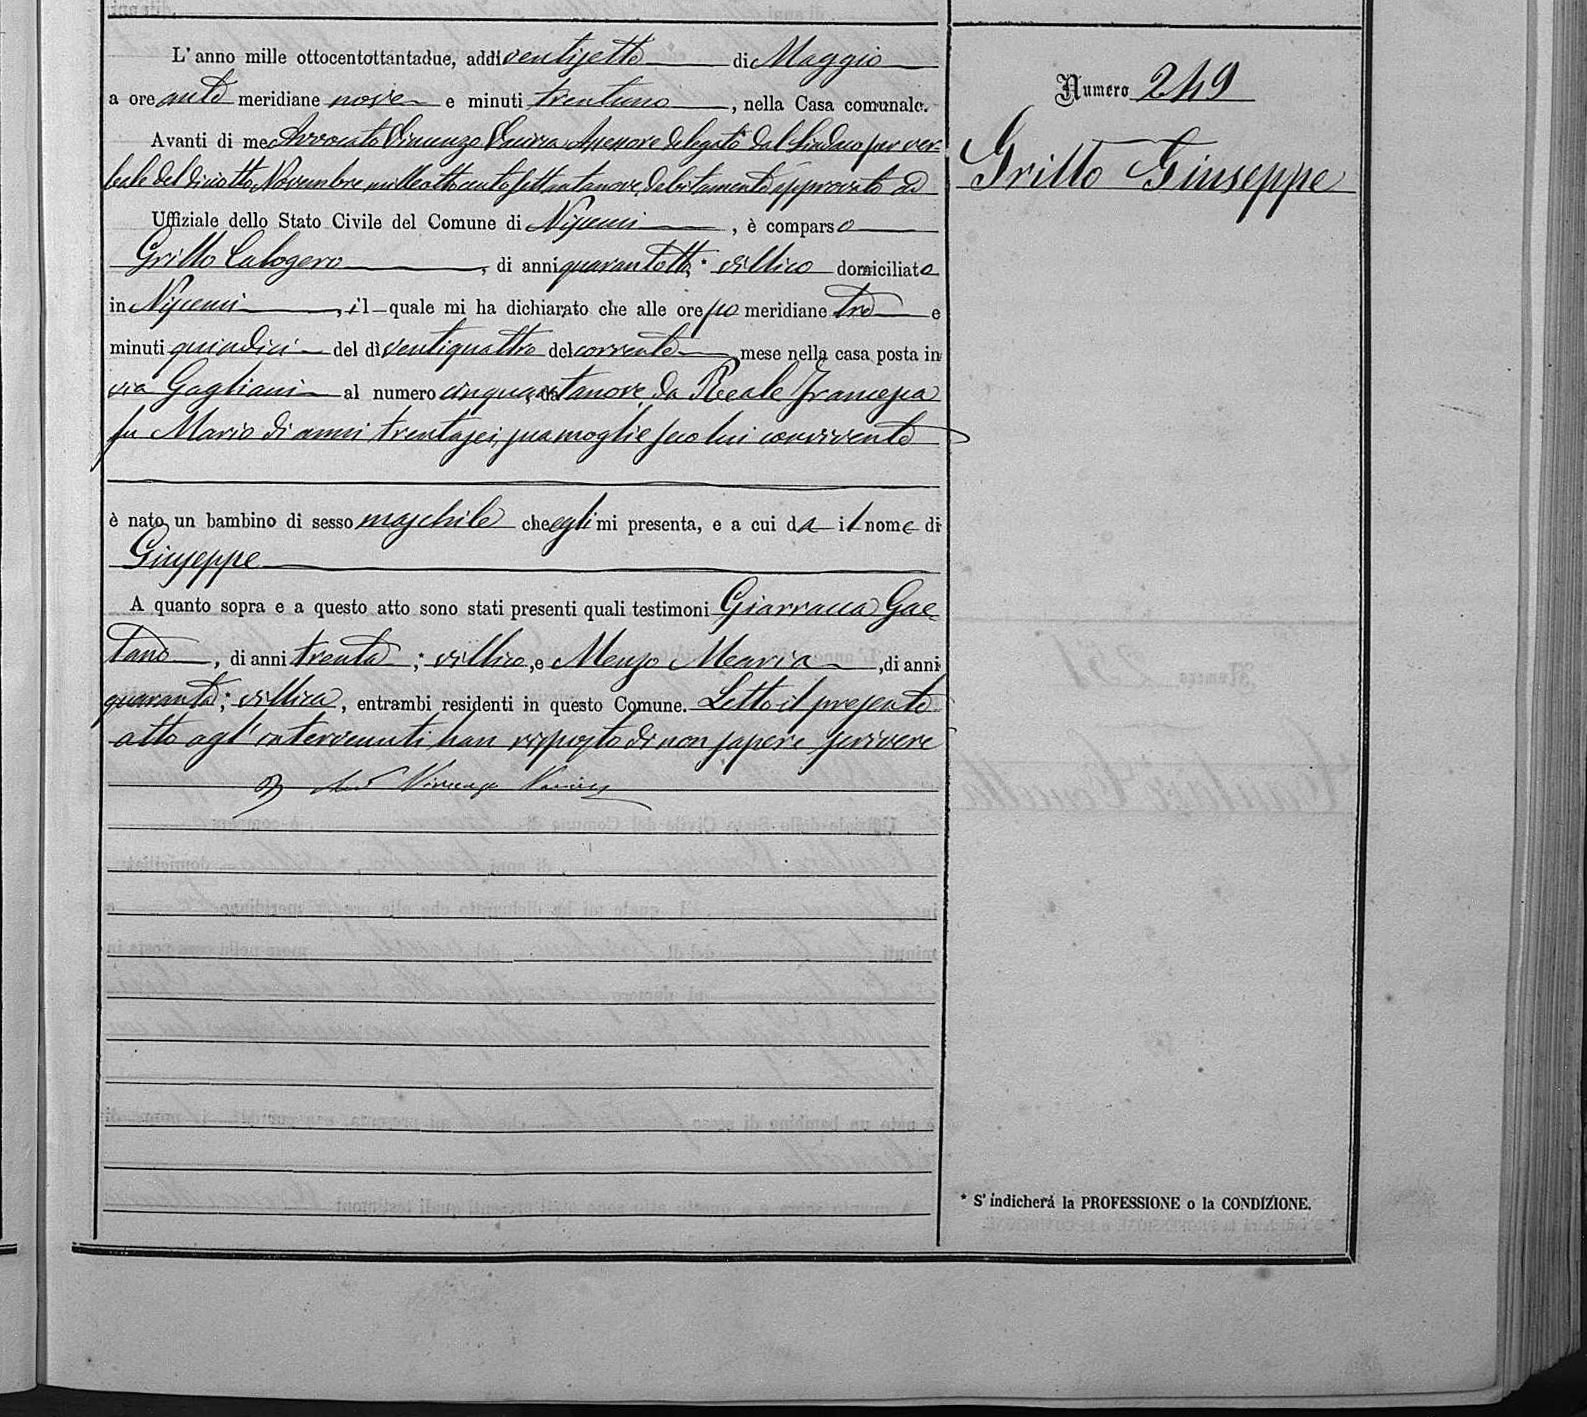 L'anno mille ottocentottantadue, addi ventisette di Maggio
a ore ante meridiane nove e minuti trentuno, nella Casa comunale.
Numero 249
Gritto Giuseppe
Avanti di me Avvocato Vincenzo Assessore delegato dal Sindaco per ver-
bale del diciotto Novembre milleottocentosettantanove, debitamente approvato ad
Uffiziale dello Stato Civile del Comune di Niscemi, è comparso
Gritto Calogero, di anni quarantotto, * villico domiciliato
in Niscemi, il quale mi ha dichiarato che alle ore po meridiane tre e
minuti quindici del dì ventiquattro del corrente mese nella casa posta in
via Gagliani al numero cinquantanove, da Reale Francesca
fu Mario di anni trentasei, sua moglie seco lui convivente
è nato un bambino di sesso maschile che egli mi presenta, e a cui da il nome di
Giuseppe
A quanto sopra e a questo atto sono stati presenti quali testimoni Giarracca Gae-
tano, di anni trenta, * villico, e Menzo Maria, di anni
quaranta, * villica, entrambi residenti in questo Comune. Letto il presente
atto agl'intervenuti han risposto di non sapere scrivere
Vincenzo
* S'indicherá la PROFESSIONE o la CONDIZIONE.